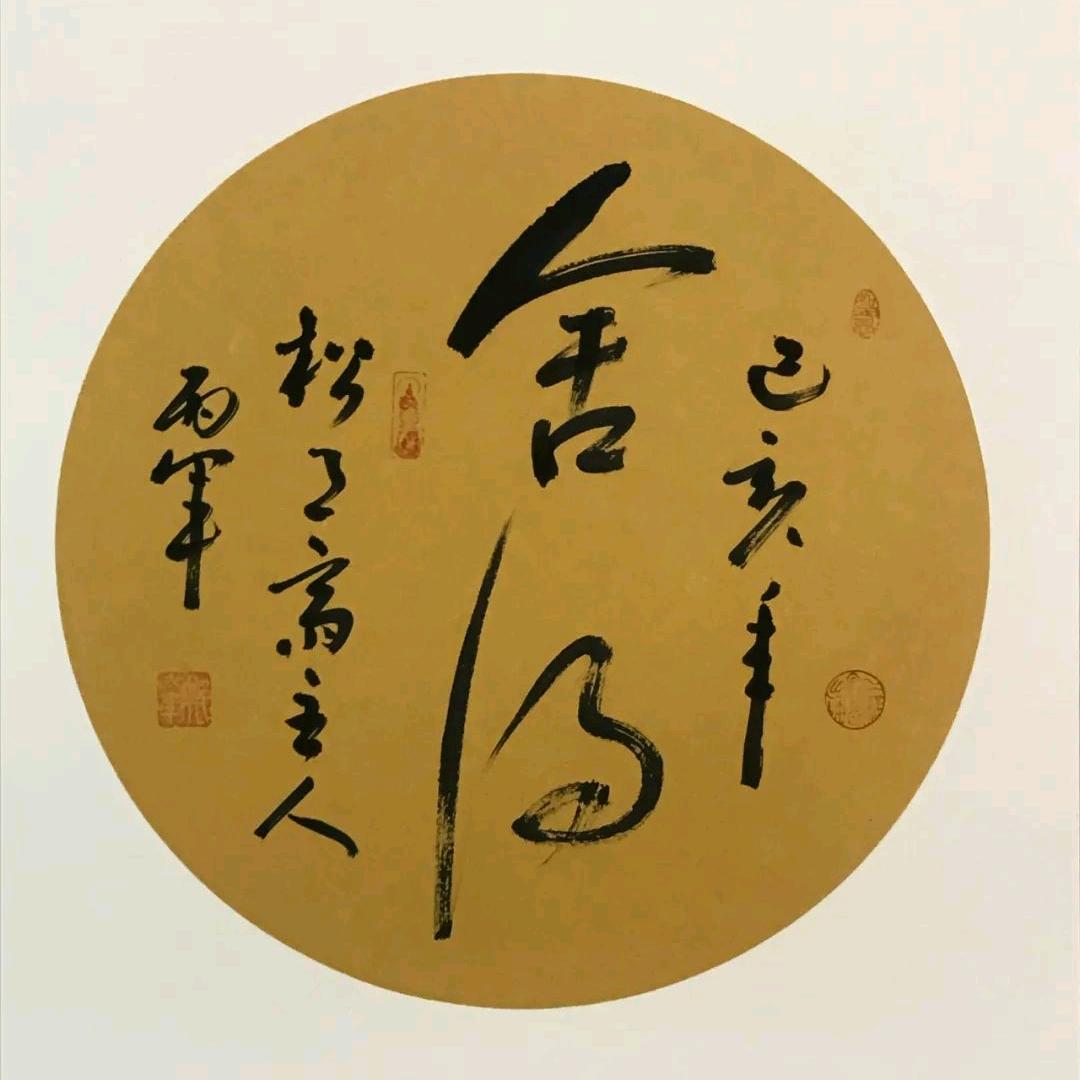 己亥年
舍得
松月斋主人
雨军